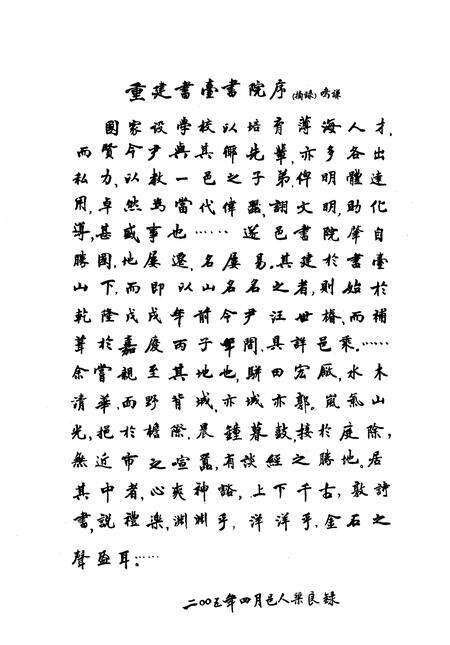 重建书臺書院序(摘録)秀謀
國家设学校以培育薄海人才,
而賢令尹與其聯先輩,亦多各出
私力,以教一邑之子弟,俾明體達
用,卓然為當代偉器,詡文明,助化
導,甚盛事也……遂邑書院肇自
勝國,地屡遷,名屡易。其建於書臺
山下,而即以山名名之者,則始於
乾隆戊戌年前令尹汪世椿,而補
葺於嘉慶丙子年間,具詳邑乘。……
余嘗親至其地也,駢田宏厰,水木
清華,而野背城,亦城亦郭。嵐氣山
光,挹於檐際,晨鐘暮鼓,接於庭除,
無近市之喧囂,有談經之勝地。居
其中者,心爽神豁,上下千古,敦詩
書,說禮樂,渊渊乎,洋洋乎,金石之
聲盈耳。……
二〇〇五年四月邑人梁良録